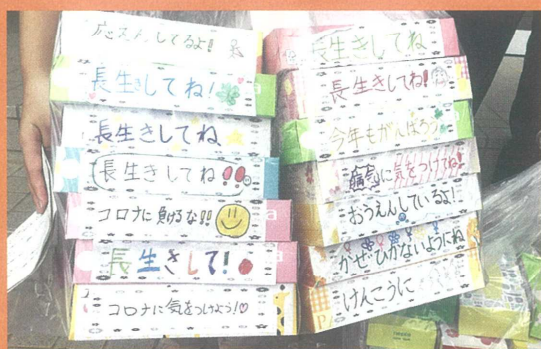 おうえんしてるよ!!
長生きしてね!
長生きしてね
長生きしてね!!
コロナに負けるな!!
長生きして!
コロナに気をつけよう!
長生きしてね
長生きしてね!!
今年もがんばろう
病気に気をつけてね!
おうえんしているよ!
かぜひかないようにね
けんこうに